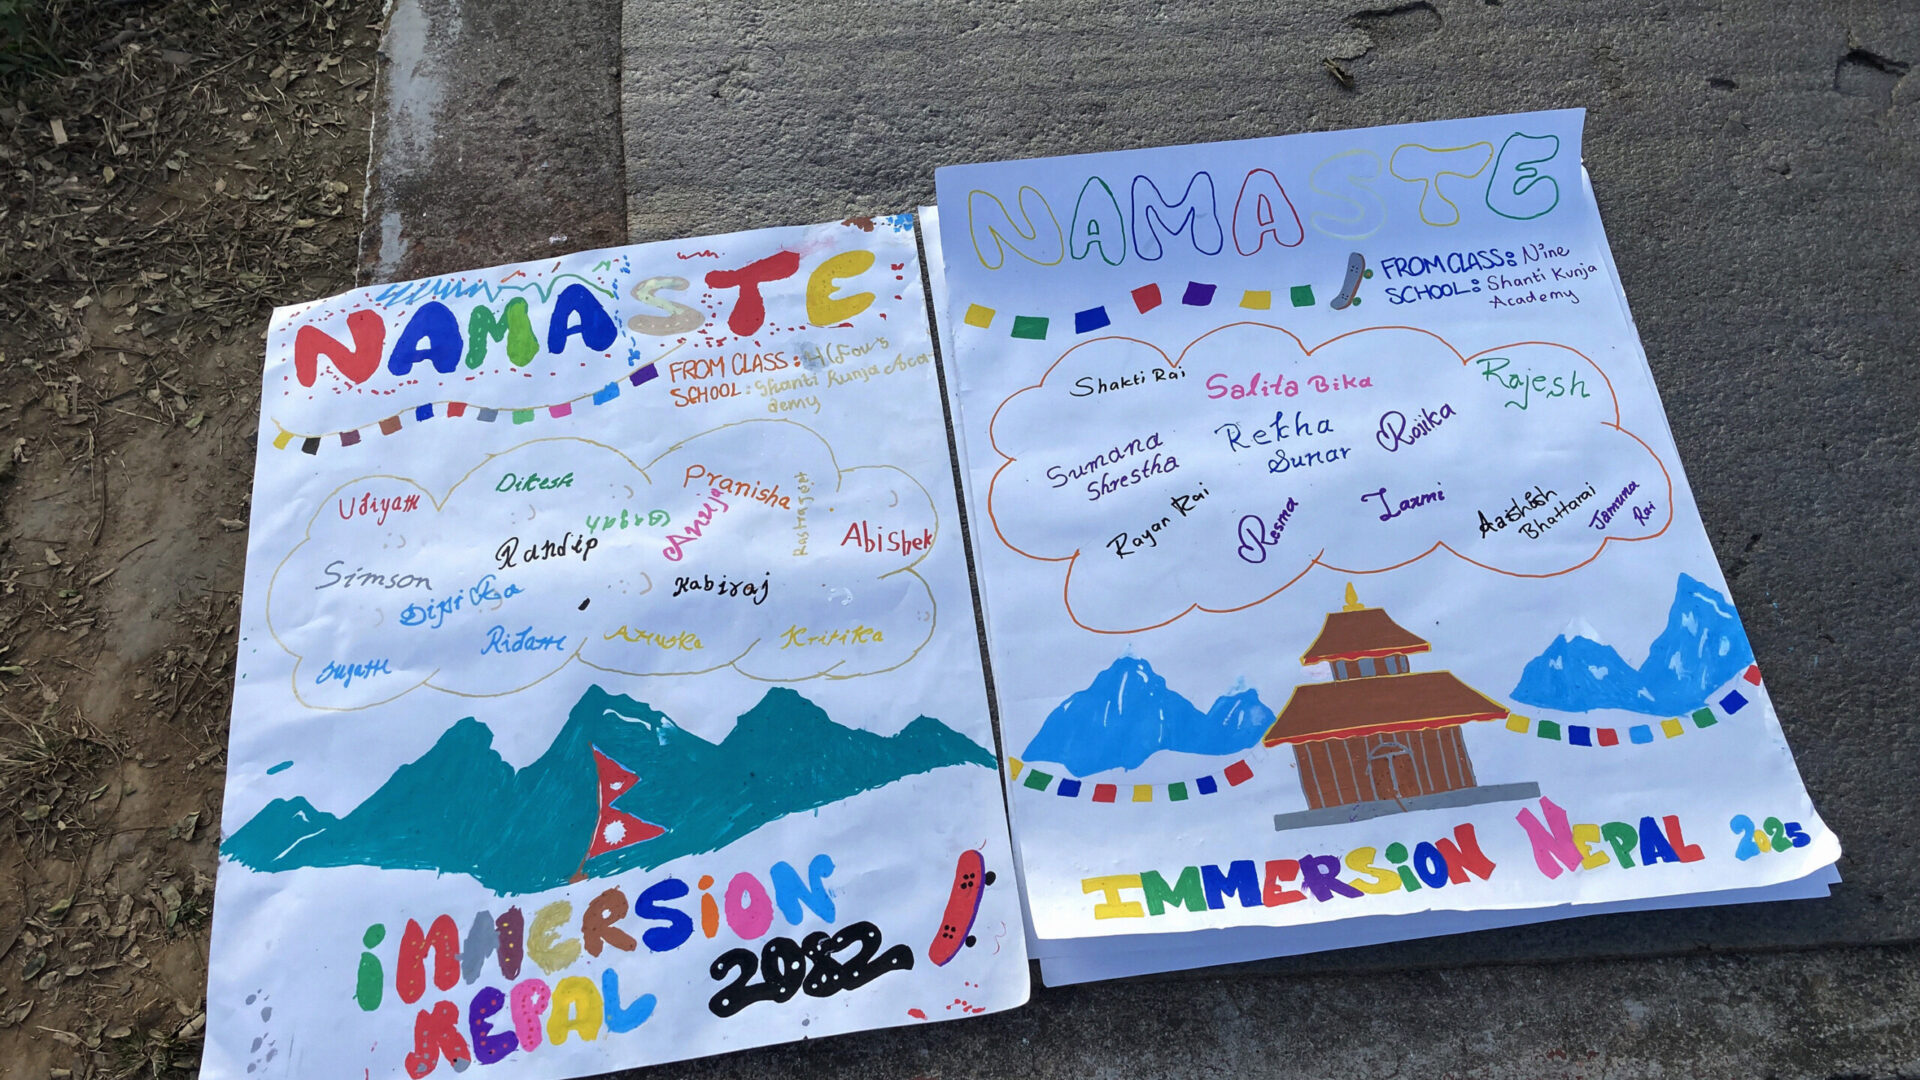 NAMASTE
FROM CLASS: 4(Four
SCHOOL: Shanti Kunja Aca-
demy
Udiyam
Dikesh
Pranisha
Anuj
Rastrajeet
Abishek
Simson
Randip
Kabiraj
Ridam
Anuska
Kritika
Sugam
IMMERSION
NEPAL 2082
NAMASTE
FROM CLASS: Nine
SCHOOL: Shanti Kunja
Academy
Shakti Rai
Salita Bika
Rajesh
Sumana
Shrestha
Rekha
Sunar
Rojika
Rayan Rai
Resma
Laxmi
Aashish
Bhattarai
Jamuna
Rai
IMMERSION NEPAL 2025